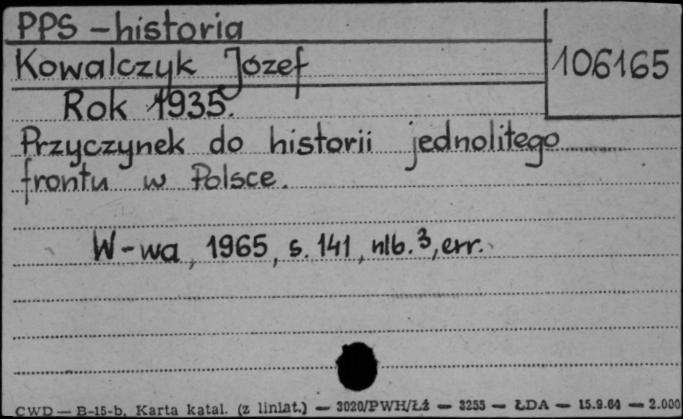 PPS - historia
Kowalczyk Józef
106165
Rok 1935.
Przyczynek do historii jednolitego
frontu w Polsce.
W-wa, 1965, s. 141, nlb. 3, err.
CWD — B-15-b, Karta katal. (z liniat.) — 3020/PWH/Łź — 3255 — ŁDA — 15.9.64 — 2.000